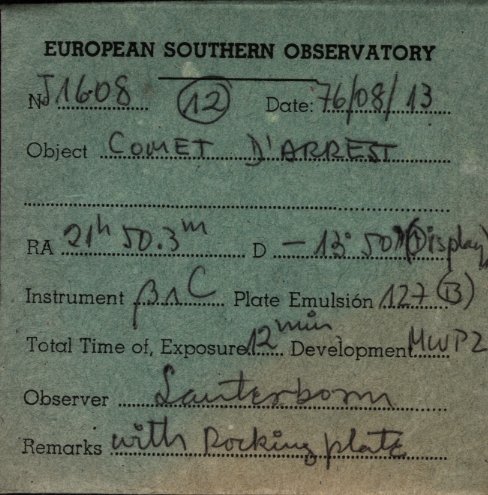 EUROPEAN SOUTHERN OBSERVATORY
Nº J1608 (12) Date: 76/08/13
Object COMET D'ARREST
RA 21h 50.3m D -13° 50' (Display)
Instrument Plate Emulsión 127 (B)
Total Time of, Exposure 12 min Development MWP2
Observer Lauterborn
Remarks with Rocking plate